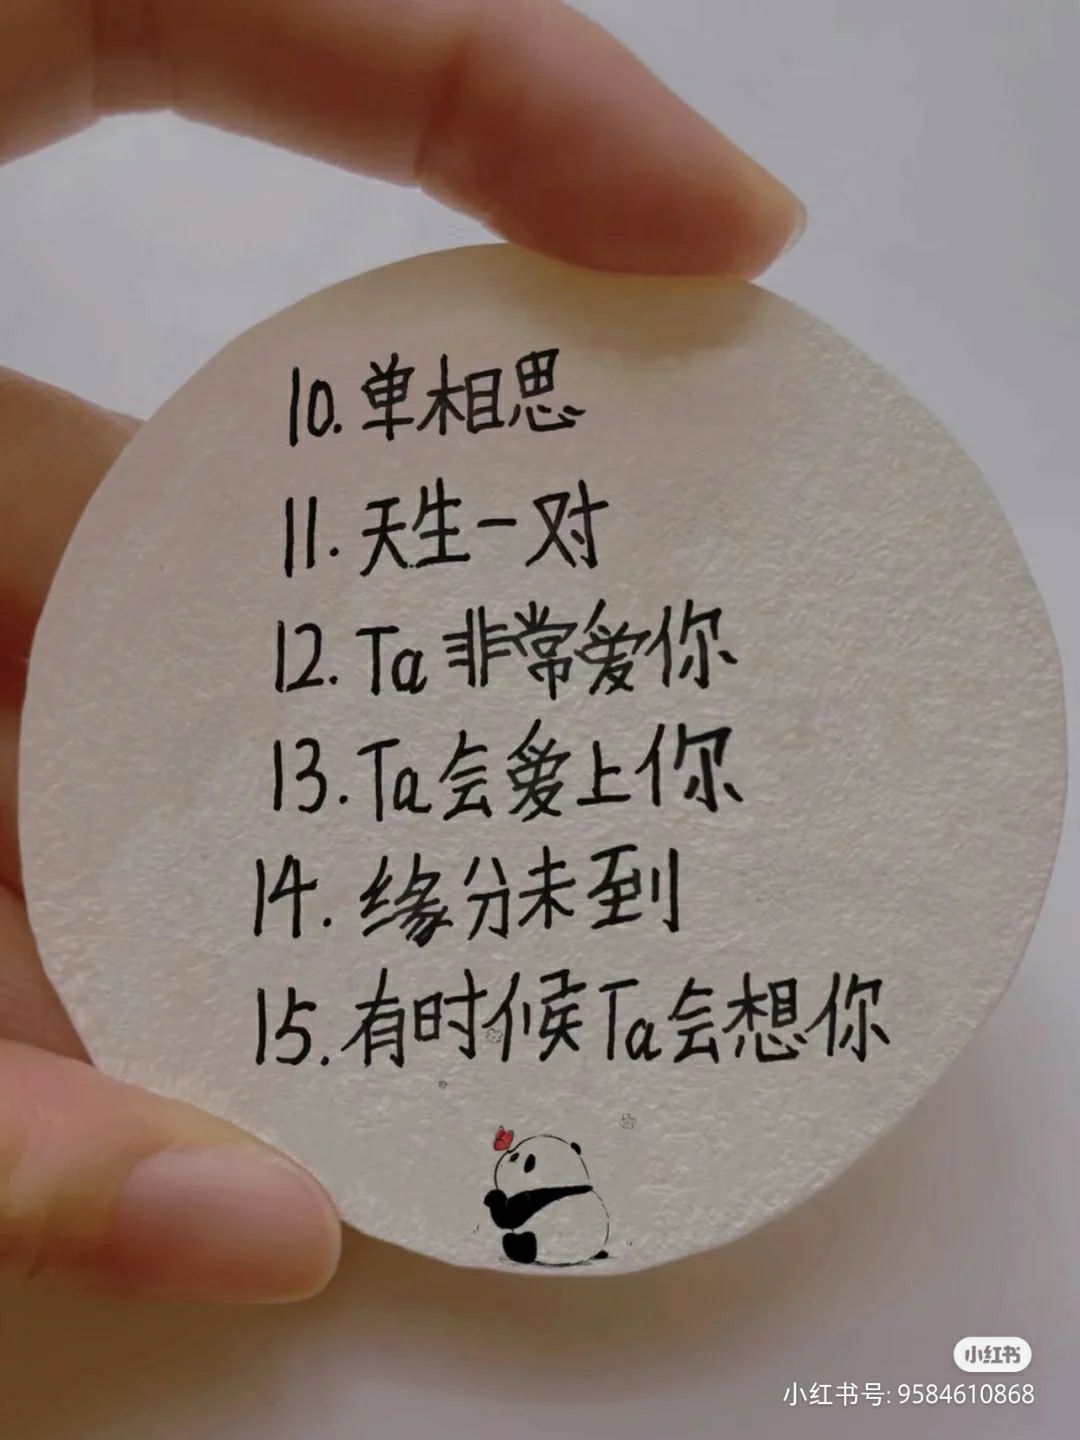 10. 单相思
11. 天生一对
12. Ta 非常爱你
13. Ta会爱上你
14. 缘分未到
15. 有时候Ta会想你
小红书
小红书号: 9584610868